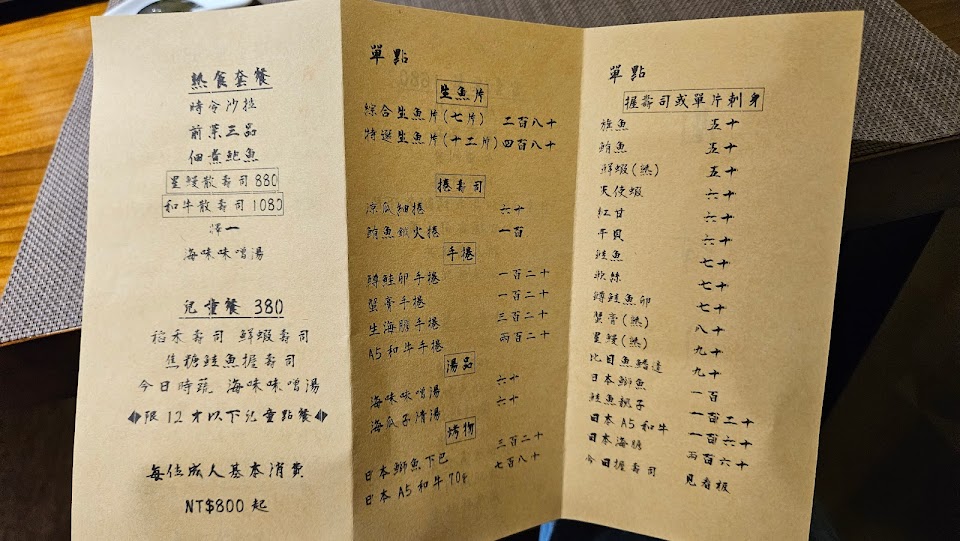 熟食套餐
時令沙拉
前菜三品
佃煮鮑魚
星鰻散壽司 880
和牛散壽司 1080
擇一
海味味噌湯
兒童餐 380
稻禾壽司 鮮蝦壽司
焦糖鮭魚握壽司
今日時蔬 海味味噌湯
◆限12才以下兒童點餐◆
每位成人基本消費
NT$800 起
單點
生魚片
綜合生魚片(七片) 二百八十
特選生魚片(十二片) 四百八十
捲壽司
涼瓜細捲 六十
鮪魚鐵火捲 一百
手捲
鱒鮭卵手捲 一百二十
蟹膏手捲 一百二十
生海膽手捲 三百二十
A5和牛手捲 兩百二十
湯品
海味味噌湯 六十
海瓜子清湯 六十
烤物
日本鰤魚下巴 三百二十
日本A5和牛70g 七百八十
單點
握壽司或單片刺身
旗魚 五十
鮪魚 五十
鮮蝦(熟) 五十
天使蝦 六十
紅甘 六十
干貝 六十
鮭魚 七十
軟絲 七十
鱒鮭魚卵 七十
蟹膏(熟) 八十
星鰻(熟) 九十
比目魚鰭邊 九十
日本鰤魚 一百
鮭魚親子 一百二十
日本A5和牛 一百六十
日本海膽 兩百六十
今日握壽司 見看板